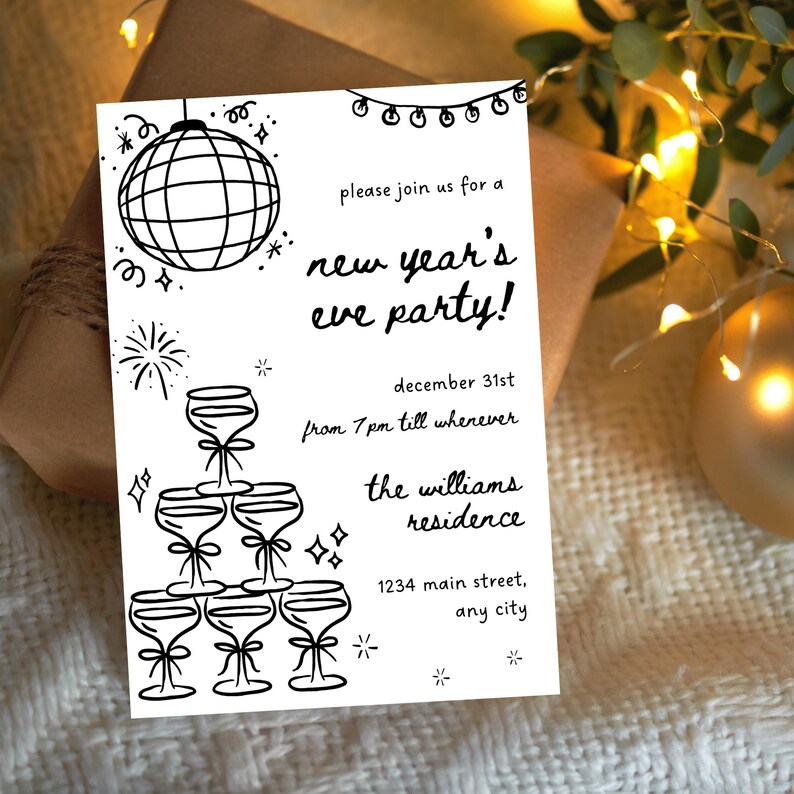 please join us for a
new year's
eve party!
december 31st
from 7pm till whenever
the williams
residence
1234 main street,
any city